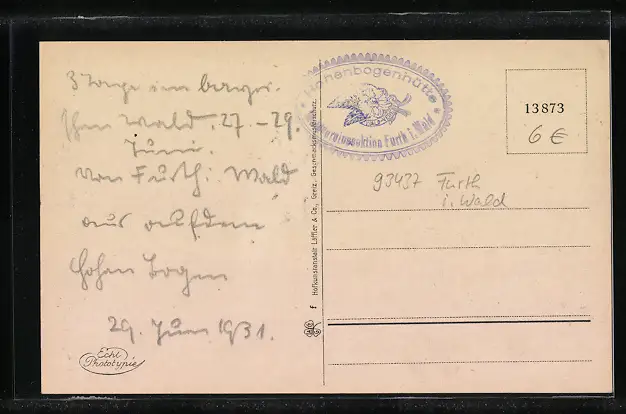 3 Tage im bayri-
schen Wald. 27.-29.
Juni.
von Furth i. Wald
aus auf dem
Hohen Bogen
29. Juni 1931.
Echt
Phototypie
Hohenbogenhütte
Waldvereinssektion Furth i. Wald
f Hofkunstanstalt Löffler & Co., Greiz. Geschmacksmusterschutz.
13873
6 €
93437 Furth
i. Wald